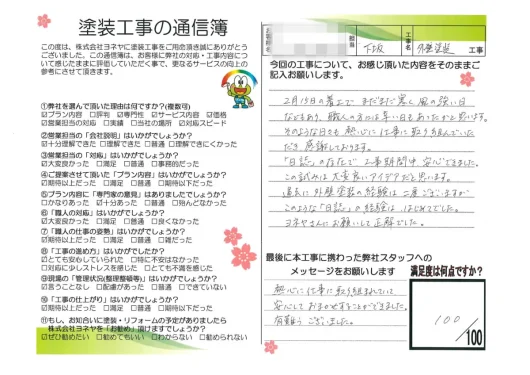 塗装工事の通信簿
この度は、株式会社ヨネヤに塗装工事をご用命頂き誠にありがとう
ございました。この通信簿は、お客様に弊社の対応・工事内容につい
て感じたままに評価していただく事で、更なるサービスの向上の
参考にさせて頂きます。
①弊社を選んで頂いた理由は何ですか?(複数可)
☑プラン内容 □評判 ☑専門性 ☑サービス内容 ☑価格
☑営業担当の対応 □実績 □当社の場所 ☑対応スピード
②営業担当の「会社説明」はいかがでしょうか?
☑十分理解できた □理解できた □普通 □理解できにくかった
③営業担当の「対応」はいかがでしょうか?
☑大変良かった □満足 □普通 □事務的だった
④ご提案させて頂いた「プラン内容」はいかがでしょうか?
☑期待以上だった □満足 □普通 □期待以下だった
⑤プラン内容に「専門家の意見」はありましたでしょうか?
□かなりあった ☑十分あった □普通 □殆んどなかった
⑥「職人の対応」はいかがでしょうか?
☑大変良かった □満足 □普通 □良くなかった
⑦「職人の仕事の姿勢」はいかがでしょうか?
☑期待以上だった □満足 □普通 □雑だった
⑧「工事の進め方」はいかがでしたか?
☑とても安心していられた □特に不安はなかった
□対応に少しストレスを感じた □とても不満を感じた
⑨現場の「管理状況(整理整頓等)」はいかがでしょうか?
☑言うことなし □配慮があった □普通 □できていない
⑩「工事の仕上がり」はいかがでしょうか?
☑期待以上だった □満足 □普通 □期待以下だった
⑪もし、お知合いに塗装・リフォームの予定がありましたら
株式会社ヨネヤを「お勧め」頂けますでしょうか?
☑ぜひ勧めたい □勧めてもいい □わからない □勧められない
担当 下坂 工事名 外壁塗装 工事
今回の工事について、お感じ頂いた内容をそのままご
記入お願いします。
2月15日の着工で まだまだ寒く 風の強い日
などもあり、職人の方には辛い日もあったかと思います。
そのような日も 熱心に仕事に取り組んでいた
だき、感謝しております。
「日誌」の存在で 工事期間中、安心できました。
この試みは大変良いアイデアだと思います。
過去に 外壁塗装の経験は 二度ございますが
このような「日誌」の経験は はじめてでした。
ヨネヤさんにお願いして 正解でした。
最後に本工事に携わった弊社スタッフへの
メッセージをお願いします
熱心に仕事に取り組まれていて
安心しておまかせすることができました。
有難う ございました。
満足度は何点ですか?
100
/100